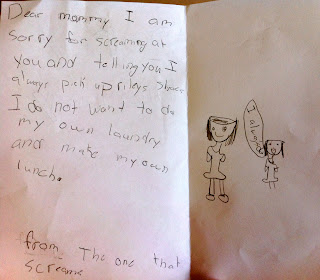 Dear mommy I am
sorry for screaming at
you and telling you I
always pick up rileys shoes
I do not want to do
my own laundry
and make my own
lunch.
from The one that
screams
I always